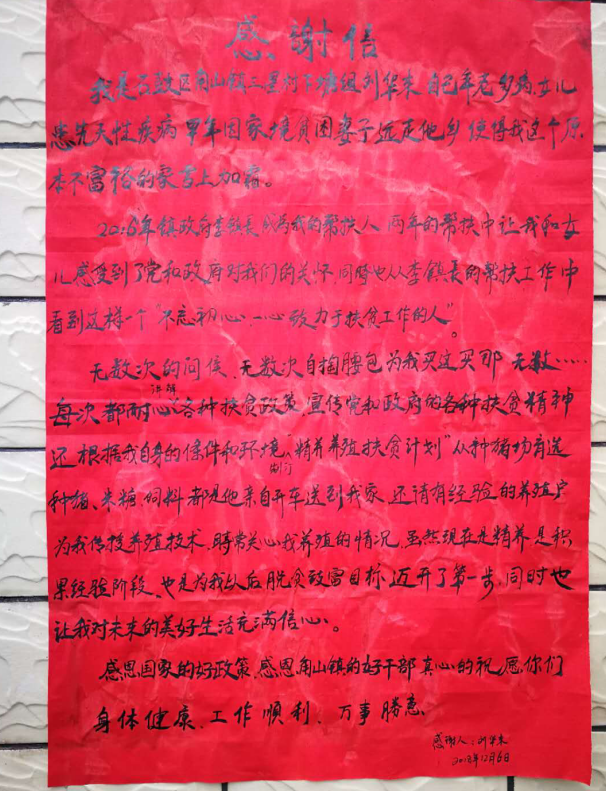 感謝信
我是石鼓区角山镇三里村下塘组刘华来 自己年老多病,女儿
患先天性疾病 早年因家境贫困妻子远走他乡 使得我这个原
本不富裕的家雪上加霜。
2016年镇政府李镇長成为我的帮扶人 两年的帮扶中让我和女
儿感受到了党和政府对我们的关怀 同時也从李鎮長的帮扶工作中
看到这样一个"不忘初心,一心致力于扶贫工作的人"。
无数次的问候、无数次自掏腰包为我买这买那 无数……
每次都耐心讲解各种扶贫政策 宣传党和政府的各种扶贫精神
还根据我自身的條件和环境制门"精养养殖扶贫计划"从种猪场育选
种猪、米糠、饲料都是他亲自开车送到我家 还请有经验的养殖户
为我传授养殖技术、時常关心我养殖的情况、虽然现在是精养是积
累经验阶段、也是为我以后脱贫致富目标迈开了第一步,同时也
让我对未来的美好生活充满信心。
感恩国家的好政策,感恩角山镇的好干部 真心的祝愿你们
身体健康、工作順利、万事勝意
感谢人:刘华来
2018年12月6日